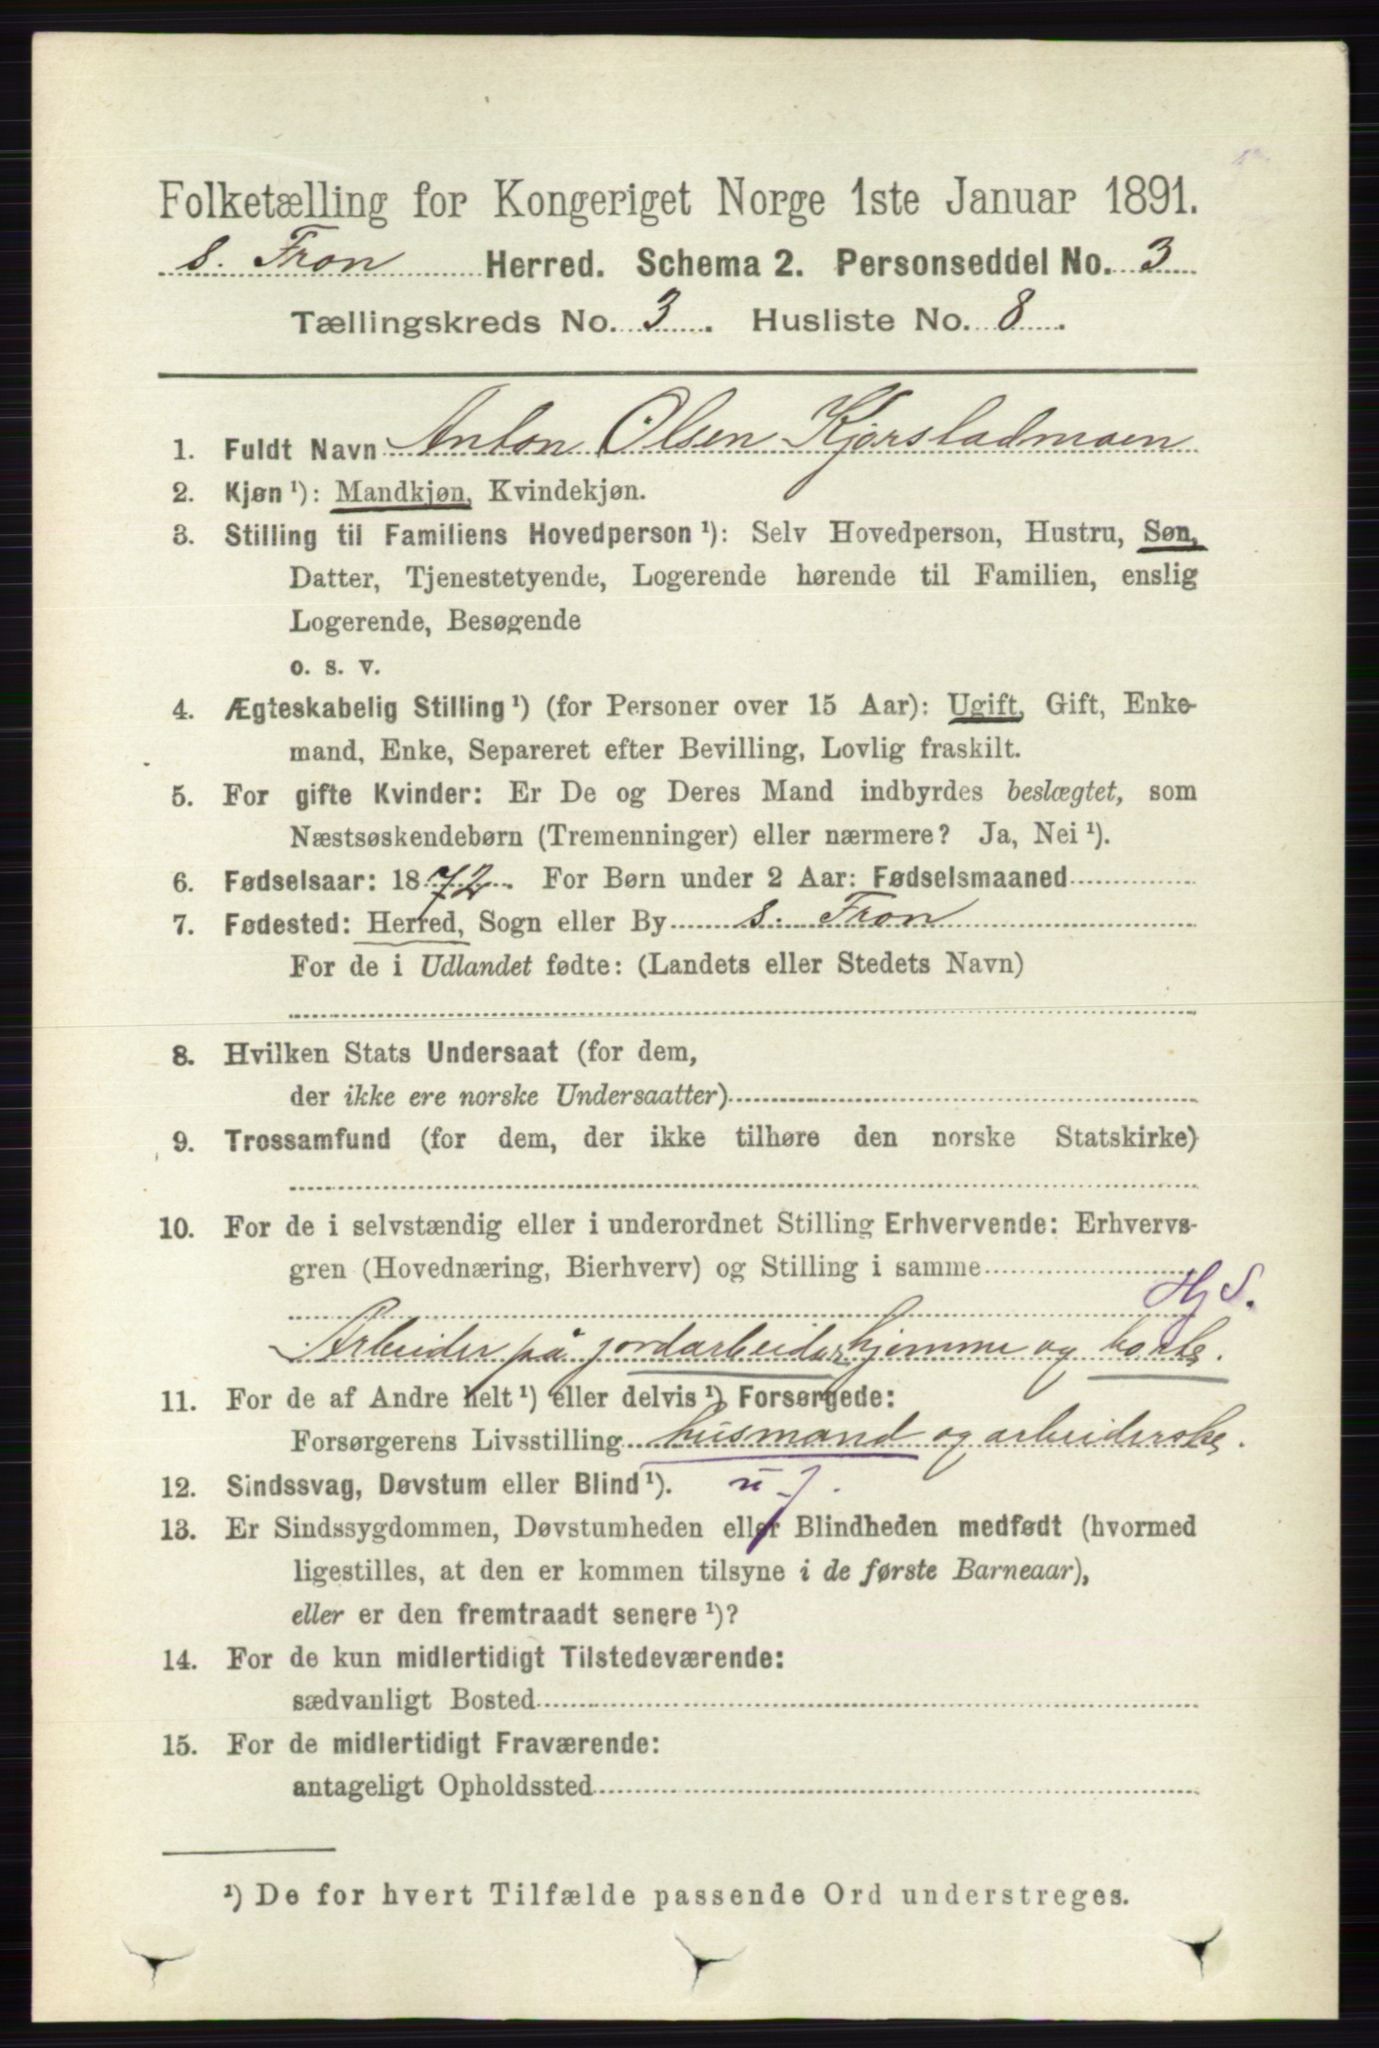 Folketælling for Kongeriget Norge 1ste Januar 1891.
S. Fron Herred. Schema 2. Personseddel No. 3
Tællingskreds No. 3. Husliste No. 8.
1. Fuldt Navn Anton Olsen Kjørstadmoen
2. Kjøn ¹): Mandkjøn, Kvindekjøn.
3. Stilling til Familiens Hovedperson ¹): Selv Hovedperson, Hustru, Søn,
Datter, Tjenestetyende, Logerende hørende til Familien, enslig
Logerende, Besøgende
o. s. v.
4. Ægteskabelig Stilling ¹) (for Personer over 15 Aar): Ugift, Gift, Enke-
mand, Enke, Separeret efter Bevilling, Lovlig fraskilt.
5. For gifte Kvinder: Er De og Deres Mand indbyrdes beslægtet, som
Næstsøskendebørn (Tremenninger) eller nærmere? Ja, Nei ¹).
6. Fødselsaar: 1872. For Børn under 2 Aar: Fødselsmaaned
7. Fødested: Herred, Sogn eller By S. Fron
For de i Udlandet fødte: (Landets eller Stedets Navn)
8. Hvilken Stats Undersaat (for dem,
der ikke ere norske Undersaatter)
9. Trossamfund (for dem, der ikke tilhøre den norske Statskirke)
10. For de i selvstændig eller i underordnet Stilling Erhvervende: Erhvervs-
gren (Hovednæring, Bierhverv) og Stilling i samme
Hj S.
Arbeider på jordarbeider hjemme og borte.
11. For de af Andre helt ¹) eller delvis ¹) Forsørgede:
Forsørgerens Livsstilling husmand og arbeiderske.
12. Sindssvag, Døvstum eller Blind ¹).
13. Er Sindssygdommen, Døvstumheden eller Blindheden medfødt (hvormed
ligestilles, at den er kommen tilsyne i de første Barneaar),
eller er den fremtraadt senere ¹)?
14. For de kun midlertidigt Tilstedeværende:
sædvanligt Bosted
15. For de midlertidigt Fraværende:
antageligt Opholdssted
¹) De for hvert Tilfælde passende Ord understreges.